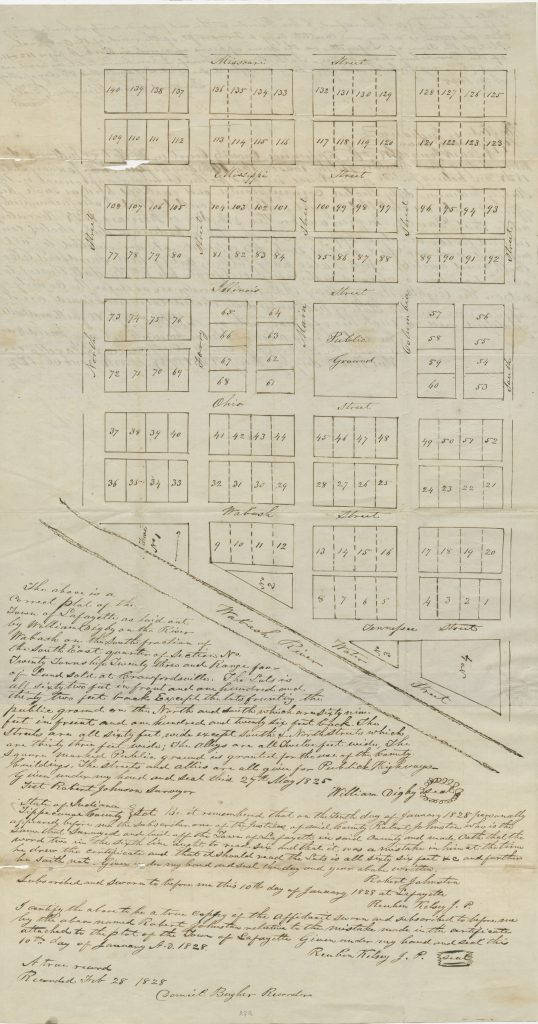 Missouri Street
140 139 138 137 136 135 134 133 132 131 130 129 128 127 126 125
109 110 111 112 113 114 115 116 117 118 119 120 121 122 123 123
Missippi Street
108 107 106 105 104 103 102 101 100 99 98 97 96 95 94 93
77 78 79 80 81 82 83 84 85 86 87 88 89 90 91 92
North Street
Ferry Street
Main Street
Columbia Street
South Street
Illinois Street
73 74 75 76 65 64 57 56
66 63 Public 58 55
72 71 70 69 67 62 Ground 59 54
68 61 60 53
Ohio Street
37 38 39 40 41 42 43 44 45 46 47 48 49 50 51 52
36 35 34 33 32 31 30 29 28 27 26 25 24 23 22 21
Wabash Street
No 1 9 10 11 12 13 14 15 16 17 18 19 20
No 2 8 7 6 5 4 3 2 1
Tennessee Street
Wabash River
Water Street
No 3 No 4
The above is a
Correct plat of the
Town of Lafayette as laid out
by William Digby on the River
Wabash on the South fraction of
the South East quarter of Section No
Twenty Township Twenty three and Range four
of Land sold at Crawfordsville. The Lots is
all sixty two feet in front and one hundred and
thirty two feet back Except the lots fronting the
public ground on the North and South which are sixty nine
feet in front and one hundred and twenty six feet back The
Streets are all sixty feet wide except South & North Streets which
are thirty three feet wide; The alleys are all Twelve feet wide, The
Square marked Public ground is granted for the use of the County
Buildings. The Streets & allies are all given for Publick Highways
Given under my hand and Seal this 27th May 1825
Test Robert Johnston Surveyor
William Digby Seal
State of Indiana
Tippecanoe County Sct. Be it remembered that on the Tenth day of January 1828 personally
appeared before me the Subscriber one of the Justices of said County Robert Johnston who is the
Same that Surveyed and laid off the Town of Lafayette in said County and made Oath that the
word two in the sixth line ought to read six and that it was a mistake in him at the time
he drew the certificate and that it should read the Lots is all sixty six feet &c and further
he saith not. Given under my hand and seal the day and year above written
Robert Johnston
Subscribed and Sworn to before me this 10th day of January 1828 at Lafayette
Reuben Kelsey J. P.
I certify the above to be a true Copy of the Affidavit Sworn and subscribed to before me
by the above named Robert Johnston relative to the mistake made in the certificate
attached to the plat of the Town of Lafayette Given under my hand and seal this
10th day of January A.D. 1828
Reuben Kelsey J. P. Seal
A true record
Recorded Feb 28 1828
Daniel Bugher Recorder